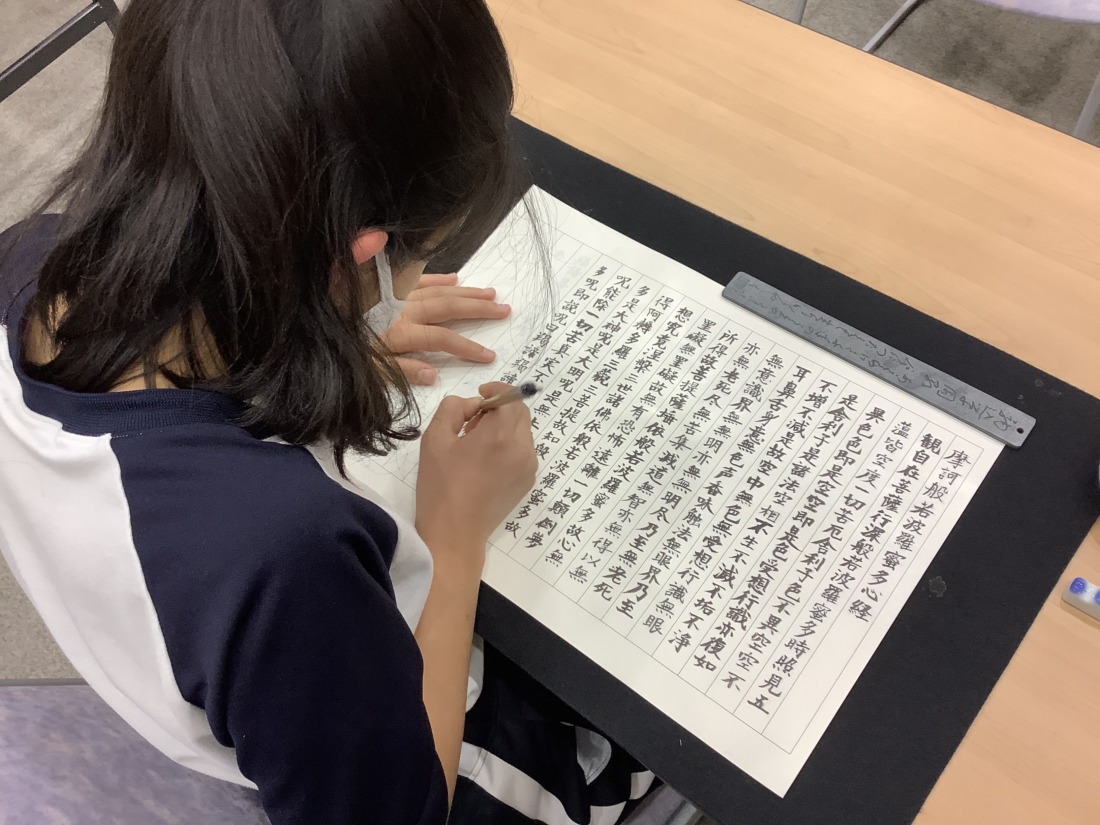 摩訶般若波羅蜜多心経
観自在菩薩行深般若波羅蜜多時照見五
蘊皆空度一切苦厄舎利子色不異空空不
異色色即是空空即是色受想行識亦復如
是舎利子是諸法空相不生不滅不垢不浄
不増不減是故空中無色無受想行識無眼
耳鼻舌身意無色声香味触法無眼界乃至
無意識界無無明亦無無明尽乃至無老死
亦無老死尽無苦集滅道無智亦無得以無
所得故菩提薩埵依般若波羅蜜多故心無
罣礙無罣礙故無有恐怖遠離一切顛倒夢
想究竟涅槃三世諸佛依般若波羅蜜多故
得阿耨多羅三藐三菩提故知般若波羅蜜
多是大神呪是大明呪是無上
呪能除一切苦真実不
多呪即説呪曰羯諦羯諦